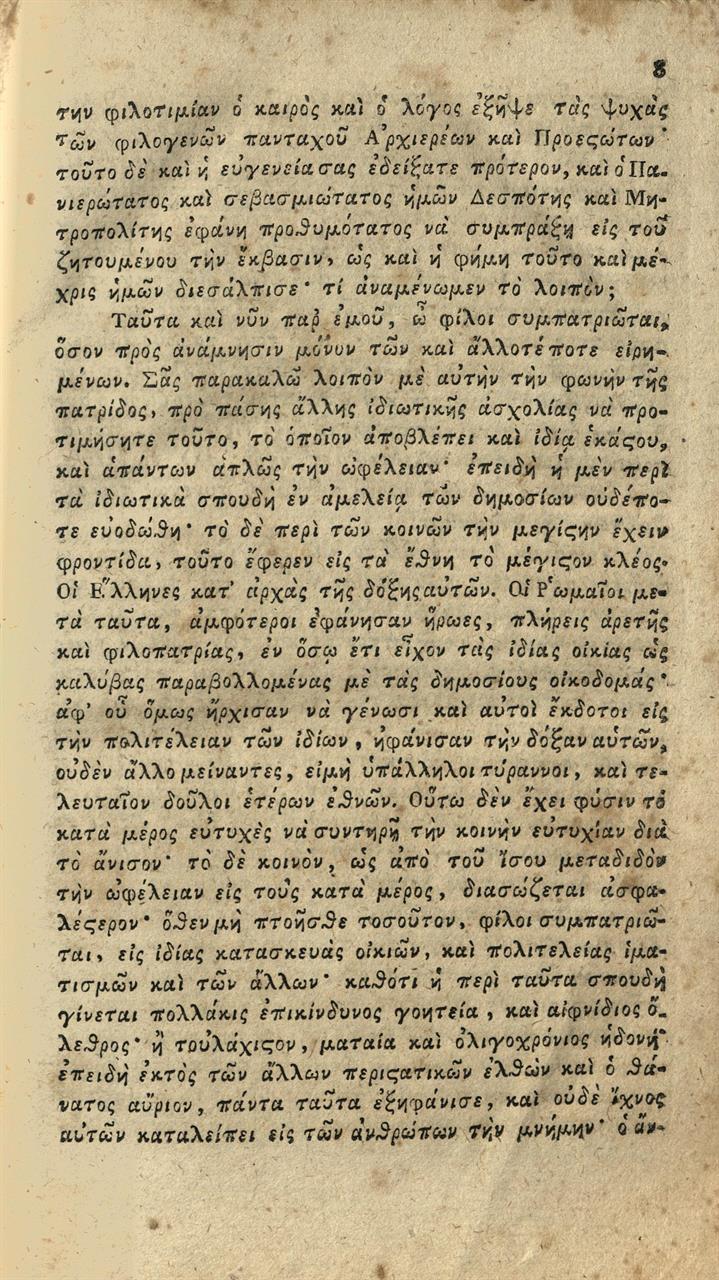 8
την φιλοτιμίαν ὁ καιρὸς καὶ ὁ λόγος ἐξῆψε τὰς ψυχὰς
τῶν φιλογενῶν πανταχοῦ Α᾿ρχιερέων καὶ Προεϛώτων·
τοῦτο δὲ καὶ ἡ εὐγενείασας ἐδείξατε πρότερον, καὶ ὁ Πα-
νιερώτατος καὶ σεβασμιώτατος ἡμῶν Δεσπότης καὶ Μη-
τροπολίτης ἐφάνη προθυμότατος νὰ συμπράξῃ εἰς τοῦ
ζητουμένου τὴν ἔκβασιν, ὡς καὶ ἡ φήμη τοῦτο καὶ μέ-
χρις ἡμῶν διεσάλπισε· τί ἀναμένωμεν τὸ λοιπὸν;
Ταῦτα καὶ νῦν παρ ἐμοῦ, ὦ φίλοι συμπατριῶται,
ὅσον πρὸς ἀνάμνησιν μόνυν τῶν καὶ ἄλλοτέ ποτε εἰρη-
μένων. Σᾶς παρακαλῶ λοιπὸν μὲ αὐτὴν τὴν φωνὴν τῆς
πατρίδος, πρὸ πάσης ἄλλης ἰδιωτικῆς ἀσχολίας νὰ προ-
τιμήσητε τοῦτο, τὸ ὁποῖον ἀποβλέπει καὶ ἰδίᾳ ἑκάϛου,
καὶ ἁπάντων ἁπλῶς τὴν ὠφέλειαν· ἐπειδὴ ἡ μὲν περὶ
τὰ ἰδιωτικὰ σπουδὴ ἐν ἀμελείᾳ τῶν δημοσίων οὐδέπο-
τε εὐοδώθη· τὸ δὲ περὶ τῶν κοινῶν τὴν μεγίϛην ἔχειν
φροντίδα, τοῦτο ἔφερεν εἰς τὰ ἔθνη τὸ μέγιϛον κλέος.
Οἱ Ε῞λληνες κατ' ἀρχὰς τῆς δόξης αὐτῶν. Οἱ Ρ῾ωμαῖοι με-
τὰ ταῦτα, ἀμφότεροι ἐφάνησαν ἥρωες, πλήρεις ἀρετῆς
καὶ φιλοπατρίας, ἐν ὅσῳ ἔτι εἶχον τὰς ἰδίας οἰκίας ὡς
καλύβας παραβολλομένας μὲ τὰς δημοσίους οἰκοδομάς·
ἀφ' οὗ ὅμως ἤρχισαν νὰ γένωσι καὶ αὐτοὶ ἔκδοτοι εἰς
τὴν πολιτέλειαν τῶν ἰδίων, ἠφάνισαν τὴν δόξαν αὑτῶν,
οὐδὲν ἄλλο μείναντες, εἰμὴ ὑπάλληλοι τύραννοι, καὶ τε-
λευταῖον δοῦλοι ἑτέρων ἐθνῶν. Οὕτω δὲν ἔχει φύσιν τὸ
κατὰ μέρος εὐτυχὲς νὰ συντηρῇ τὴν κοινὴν εὐτυχίαν διὰ
τὸ ἄνισον· τὸ δὲ κοινὸν, ὡς ἀπὸ τοῦ ἴσου μεταδιδὸν
τὴν ὠφέλειαν εἰς τοὺς κατὰ μέρος, διασώζεται ἀσφα-
λέϛερον· ὅθεν μὴ πτοῆσθε τοσοῦτον, φίλοι συμπατριῶ-
ται, εἰς ἰδίας κατασκευὰς οἰκιῶν, καὶ πολιτελείας ἱμα-
τισμῶν καὶ τῶν ἄλλων· καθότι ἡ περὶ ταῦτα σπουδὴ
γίνεται πολλάκις ἐπικίνδυνος γοητεία, καὶ αἰφνίδιος ὄ-
λεθρος· ἢ τουλάχιϛον, ματαία καὶ ὀλιγοχρόνιος ἡδονή·
ἐπειδὴ ἐκτὸς τῶν ἄλλων περιϛατικῶν ἐλθὼν καὶ ὁ θά-
νατος αὔριον, πάντα ταῦτα ἐξηφάνισε, καὶ οὐδὲ ἴχνος
αὐτῶν καταλείπει εἰς τῶν ἀνθρώπων τὴν μνήμην· ὁ ἄν-